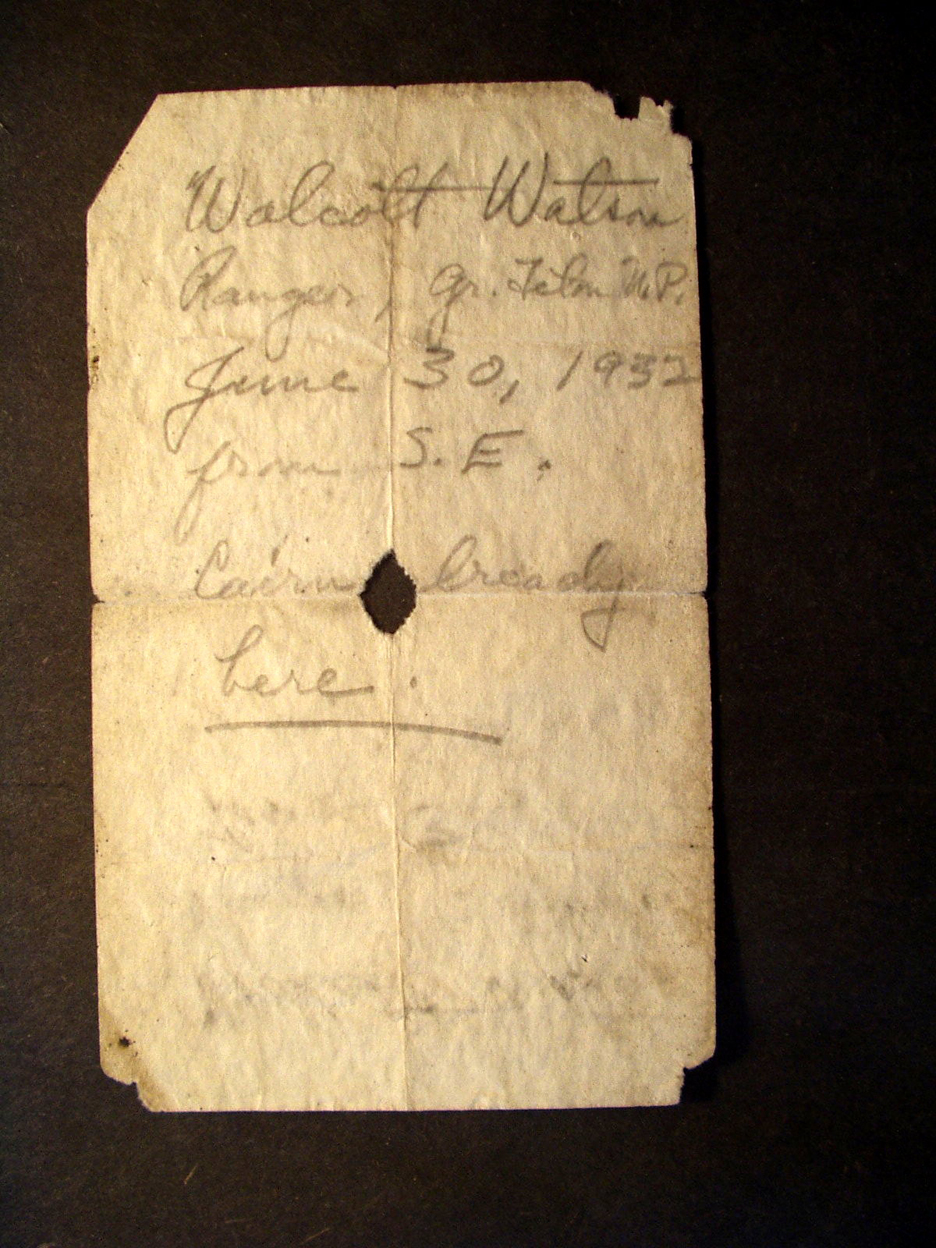 Walcott Watson
Ranger, Gr. Teton N.P.
June 30, 1932
from S.E.
Cairn already
here.